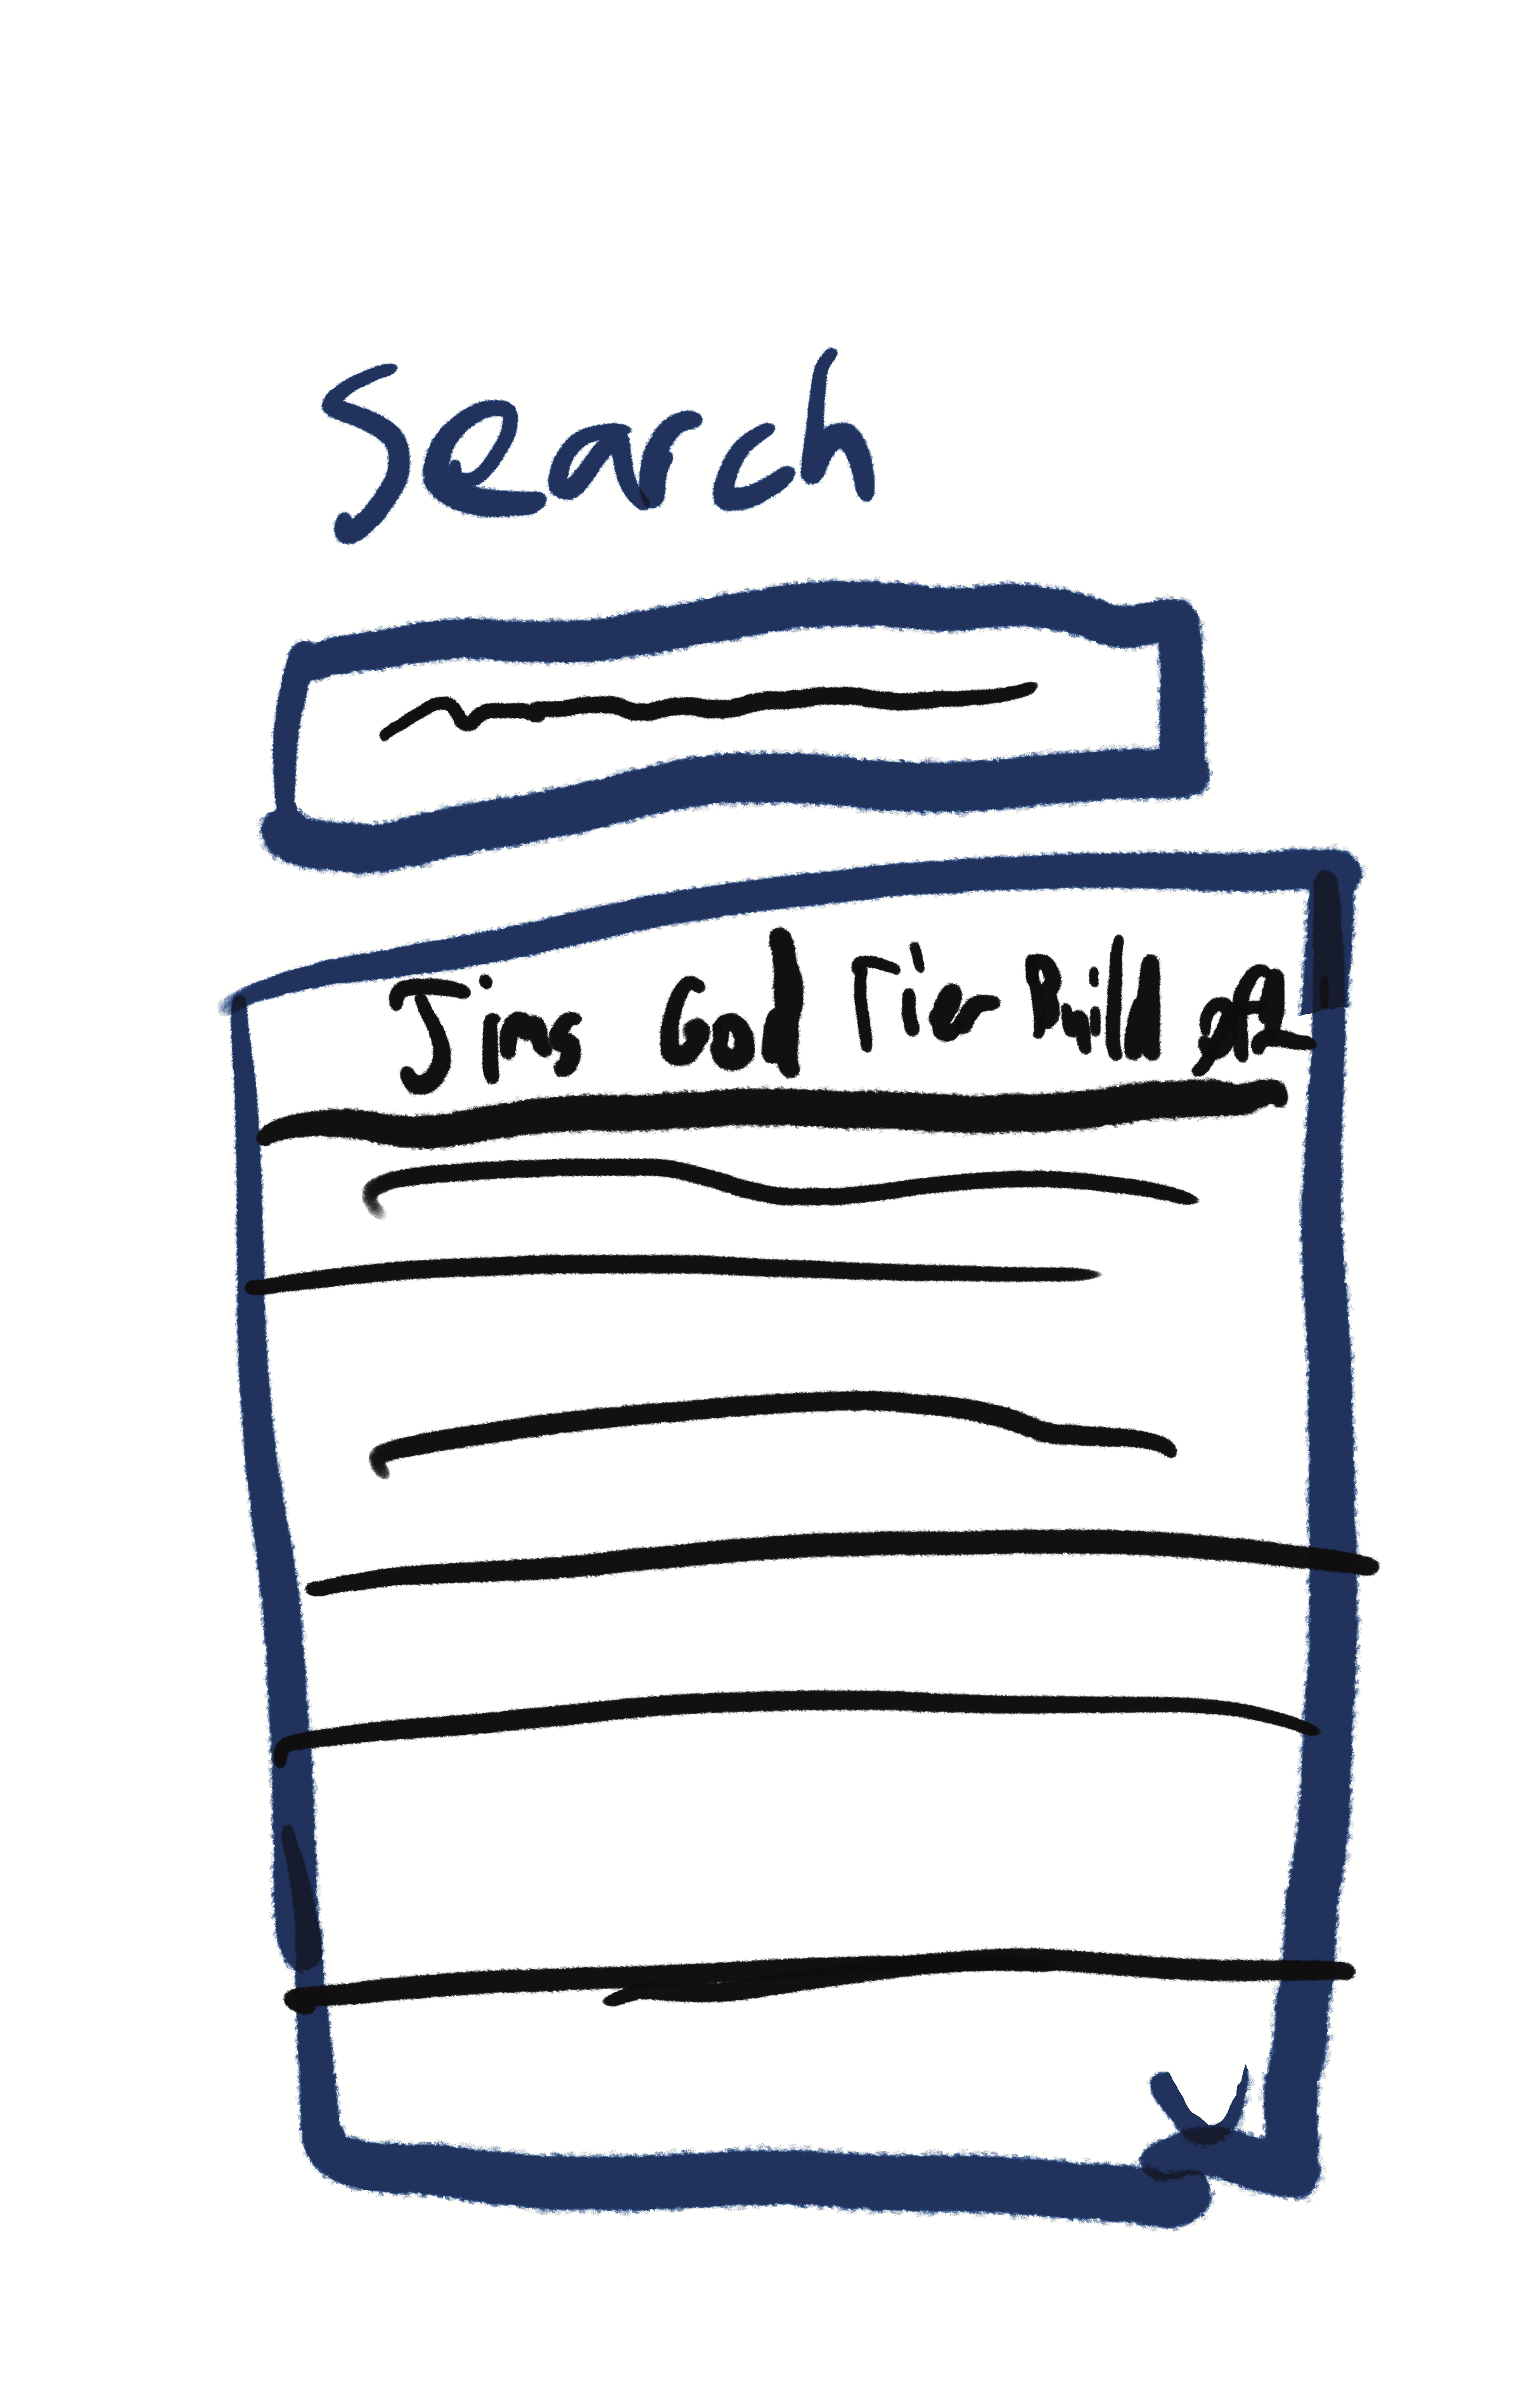 Search
Jims God Tier Build